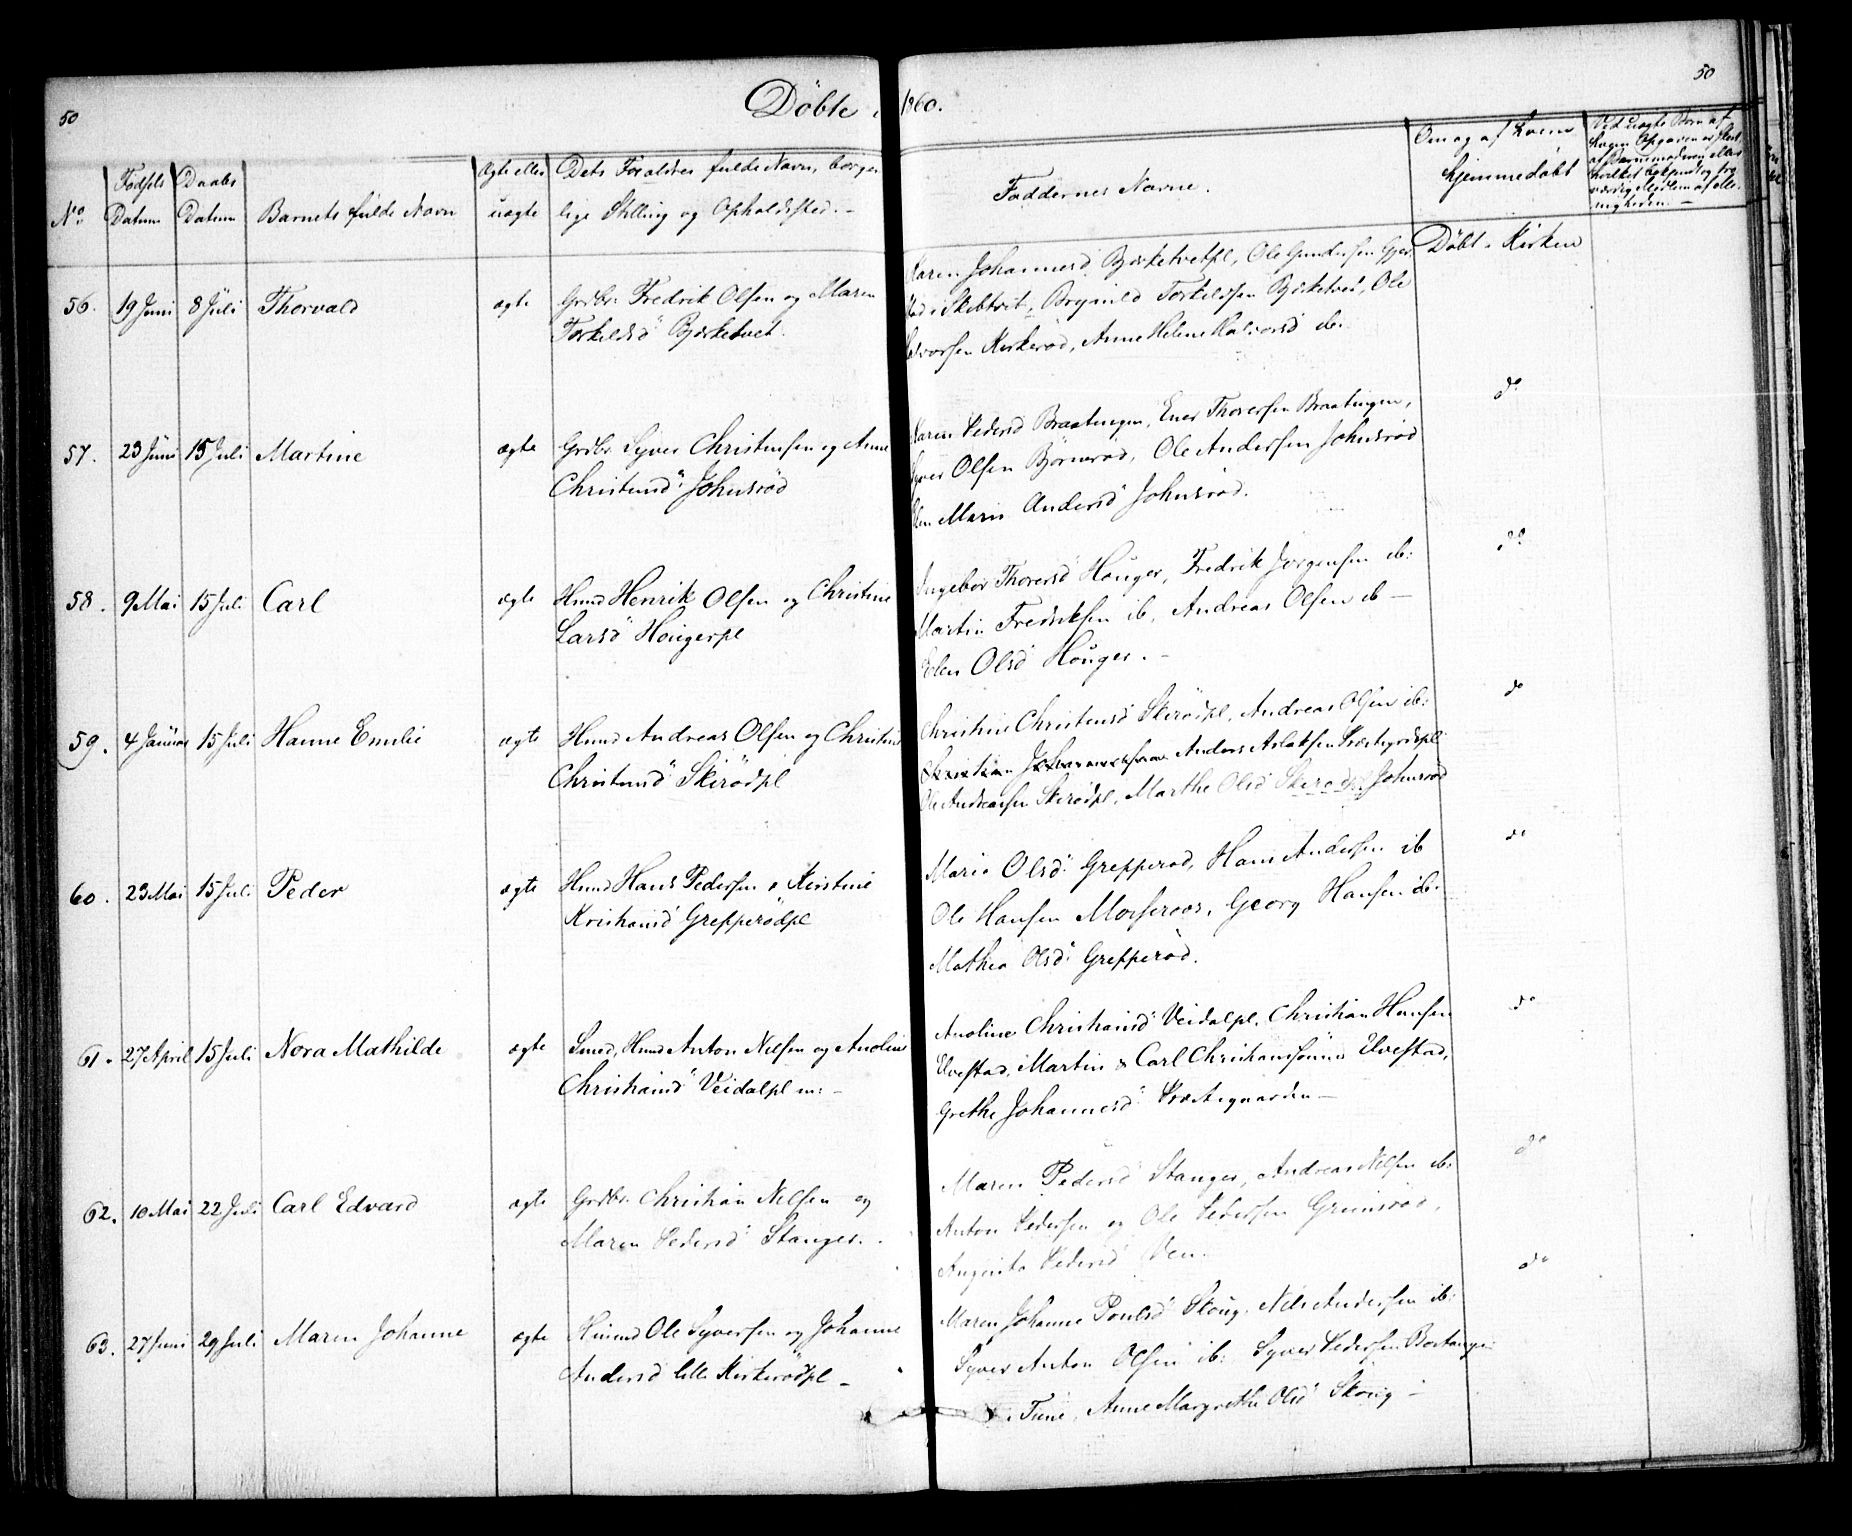 50
50
Döbte i 1860.
No
Fødsels Datum
Daabs Datum
Barnets fulde Navn
Ægte eller uægte
Dets Forældres fulde Navn, borger
lige Stilling og Opholdssted. -
Faddernes Navne.
Om og af hvem
hjemmedøbt
56. 19 Juni 8 Juli Thorvald ægte Grdbr. Fredrik Olsen og Maren
Torkildsd Bjørketvet.
Karen Johannesd. Bjørketvetpl, Ole Gundersen Gjer
stad i Skibtvit, Brynild Torkildsen Bjørketvet, Ole
Halvorsen Kirkerød, Anne Helene Halvorsd ib:
Döbt i Kirken
57. 23 Juni 15 Juli Martine ægte Grdbr Syver Christensen og Anne
Christensd: Johnsrød
Karen Pedersd Braatingen, Ener Thorersen Braatingen,
Syver Olsen Björnerød, Ole Andersen Johnsrød
Marie Andersd Johnsrød.
do
58. 9 Mai 15 Juli Carl ægte Huusmd Henrik Olsen og Christine
Larsd Hougerpl
Ingebor Thorersd Houger, Fredrik Jørgensen ib:
Martin Fredriksen ib, Andreas Olsen ib -
Elen Olsd Houger. -
do
59. 4 Januar 15 Juli Hanne Emilie ægte Huusmd Andreas Olsen og Christine
Christensd Skirödpl
Christine Christensd Skirödpl, Andreas Olsen ib:
Christian Johannessen Anders Aslaksen Præstegrdspl
Ole Andreasen Skirödpl, Marthe Olsd Skirödpl Johnsrød
do
60. 23 Mai 15 Juli Peder ægte Huusmd Hans Pedersen o Kirstine
Kristiansd Grepperødpl
Marie Olsd: Grepperød, Hans Andersen ib
Ole Hansen Moseroos, Georg Hansen ib.
Mathea Olsd: Grepperød.
do
61. 27 April 15 Juli Nora Mathilde ægte Smed, Huusmd Anton Nilsen og Anoline
Christiansd Veidalpl m: -
Anoline Christiansd Veidalpl, Christian Hansen
Elvestad, Martin & Carl Christiansönner Elvestad,
Grethe Johannesd: Præstegaarden -
do
62. 10 Mai 22 Juli Carl Edvard ægte Grdbr. Christian Nilsen og
Maren Pedersd Stanger.
Maren Pedersd Stanger, Andreas Nilsen ib:
Anton Pedersen og Ole Pedersen Grimsrød,
Augusta Pedersd Ven.
do
63. 27 Juni 29 Juli Maren Johanne ægte Huusmd Ole Syversen og Johanne
Andersd lille Kirkerødpl -
Maren Johanne Poulsd Skoug, Nils Andersen ib:
Syver Anton Olsen ib: Syver Pedersen
i Tune, Anne Margrethe Olsd Skoug -
do